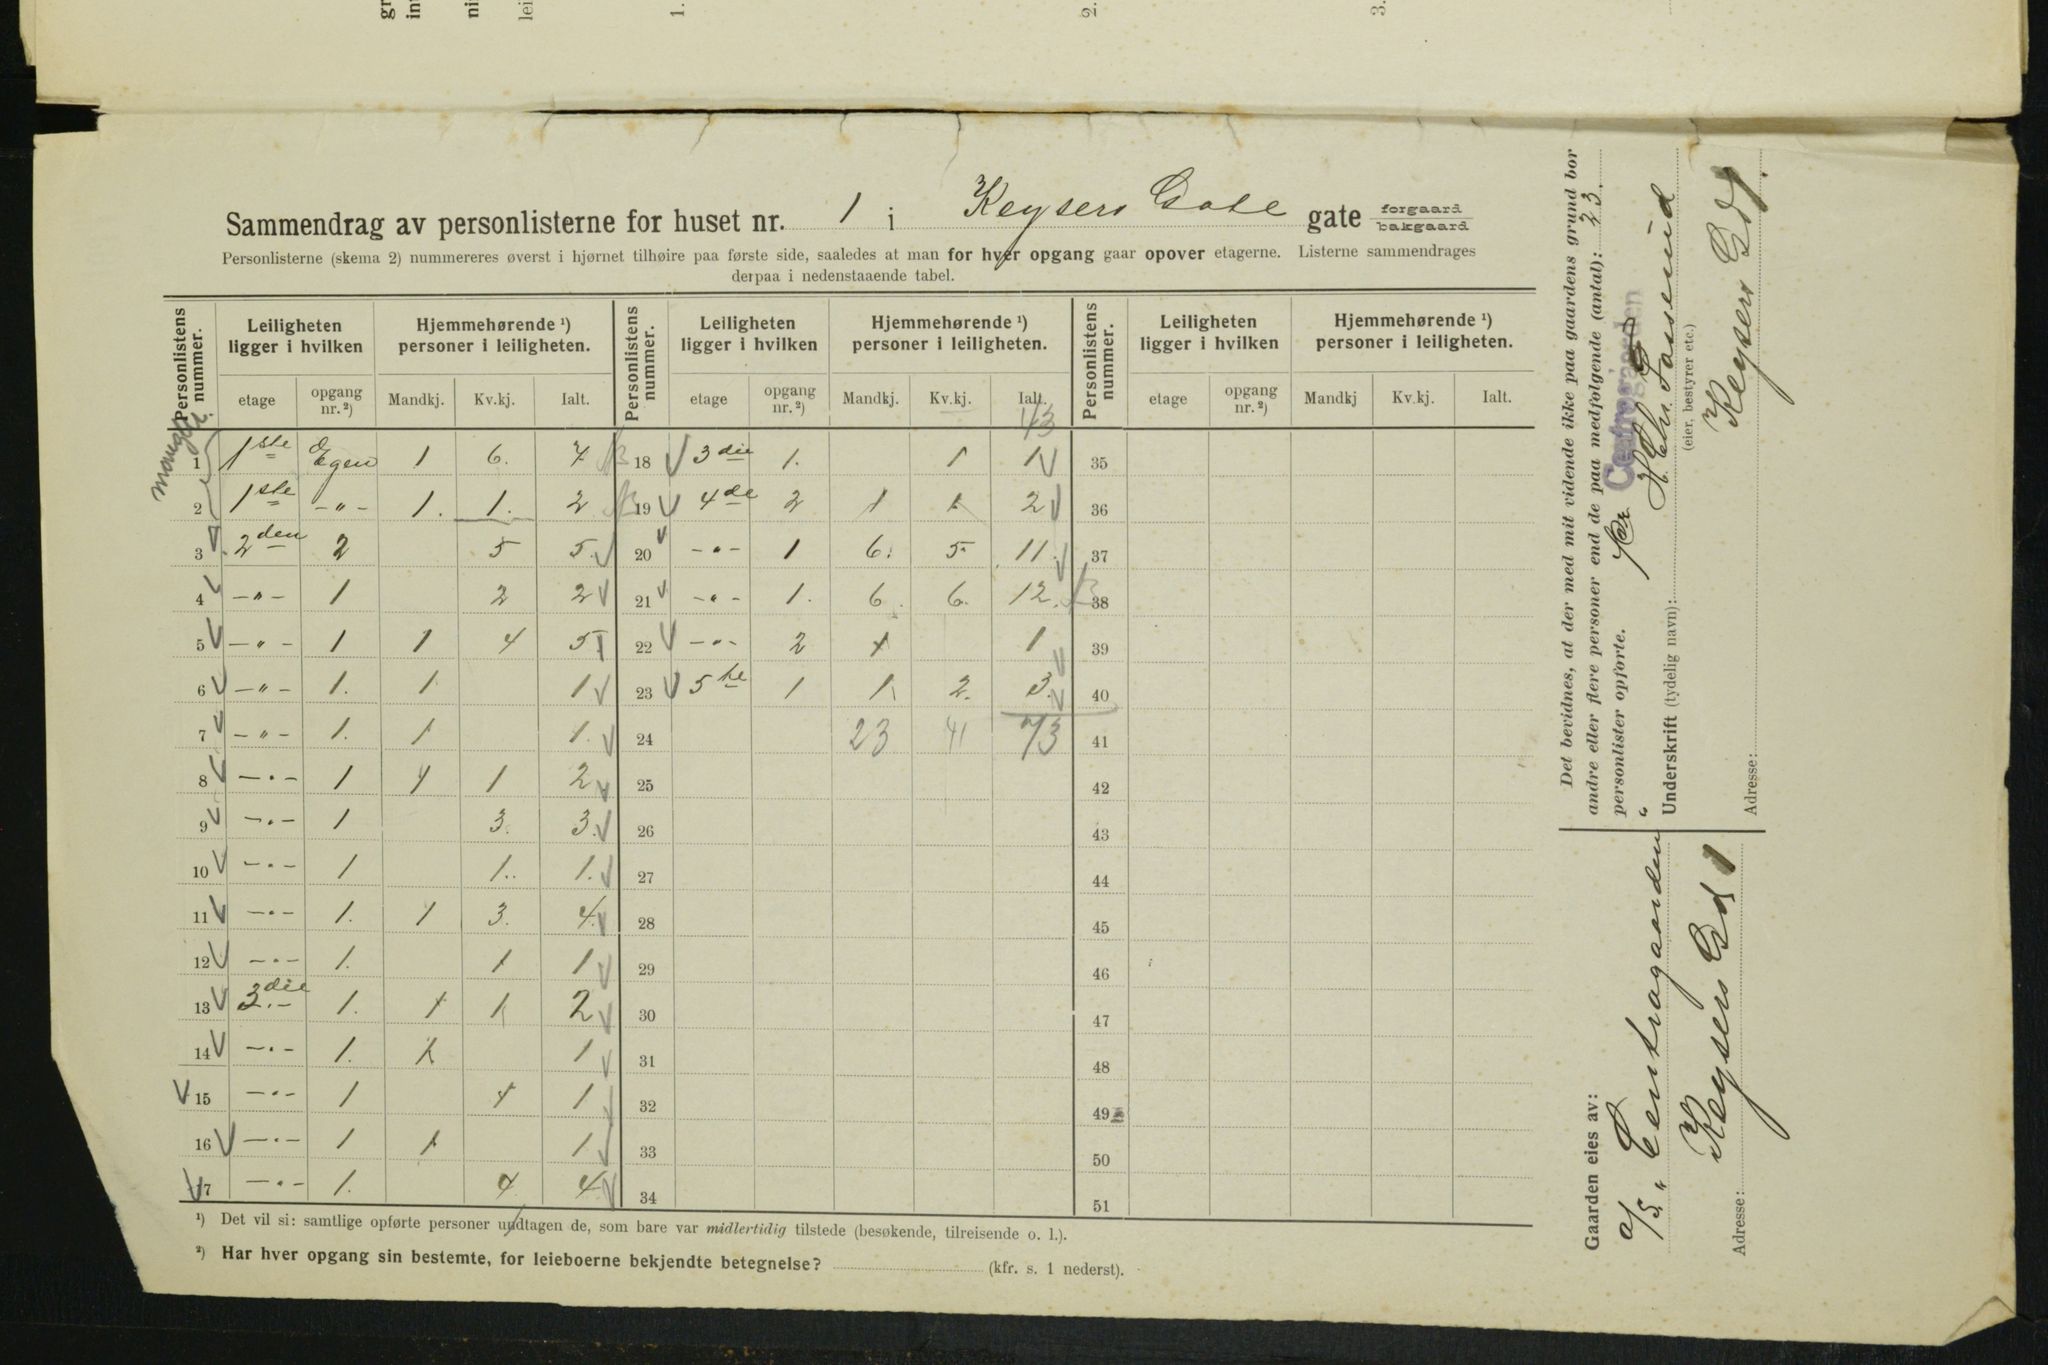 Sammendrag av personlisterne for huset nr. 1 i Keysers Gate gate forgaard bakgaard
Personlisterne (skema 2) nummereres øverst i hjørnet tilhøire paa første side, saaledes at man for hver opgang gaar opover etagerne. Listerne sammendrages
derpaa i nedenstaaende tabel.
Personlistens nummer. Leiligheten ligger i hvilken Hjemmehørende ¹) personer i leiligheten. Personlistens nummer. Leiligheten ligger i hvilken Hjemmehørende ¹) personer i leiligheten. Personlistens nummer. Leiligheten ligger i hvilken Hjemmehørende ¹) personer i leiligheten.
etage opgang nr. ²) Mandkj. Kv.kj. Ialt. etage opgang nr. ²) Mandkj. Kv.kj. Ialt. etage opgang nr. ²) Mandkj Kv.kj. Ialt.
mangler
13
1 1ste Egen 1 6. 7 18 3die 1. 1 1 35
2 1ste -"- 1. 1. 2 19 4de 2 1 1 2 36
3 2den 2 5 5. 20 -"- 1 6. 5. 11. 37
4 -"- 1 2 2 21 -"- 1. 6. 6. 12. 38
5 -"- 1 1 4 5 22 -"- 2 1 1 39
6 -"- 1. 1 1 23 5te 1 1 2. 3. 40
7 -"- 1. 1 1. 24 23 41 73 41
8 -"- 1 1 1 2 25 42
9 -"- 1 3. 3. 26 43
10 -"- 1 1.. 1. 27 44
11 -"- 1. 1 3. 4. 28 45
12 -"- 1. 1 1 29 46
13 3die -"- 1. 1 1 2 30 47
14 -"- 1. 1 1 31 48
15 -"- 1 1 1 32 49
16 -"- 1 1 1 33 50
17 -"- 1. 4 4 34 51
¹) Det vil si: samtlige opførte personer undtagen de, som bare var midlertidig tilstede (besøkende, tilreisende o. l.).
²) Har hver opgang sin bestemte, for leieboerne bekjendte betegnelse? (kfr. s. 1 nederst).
Det bevidnes, at der med mit vidende ikke paa gaardens grund bor
andre eller flere personer end de paa medfølgende (antal): 23.
personlister opførte.
for Centralgaarden
Underskrift (tydelig navn):
(eier, bestyrer etc.)
Keysers Gd 1.
Adresse:
Gaarden eies av:
a/s "Centralgaarden"
Keysers Gd 1
Adresse: